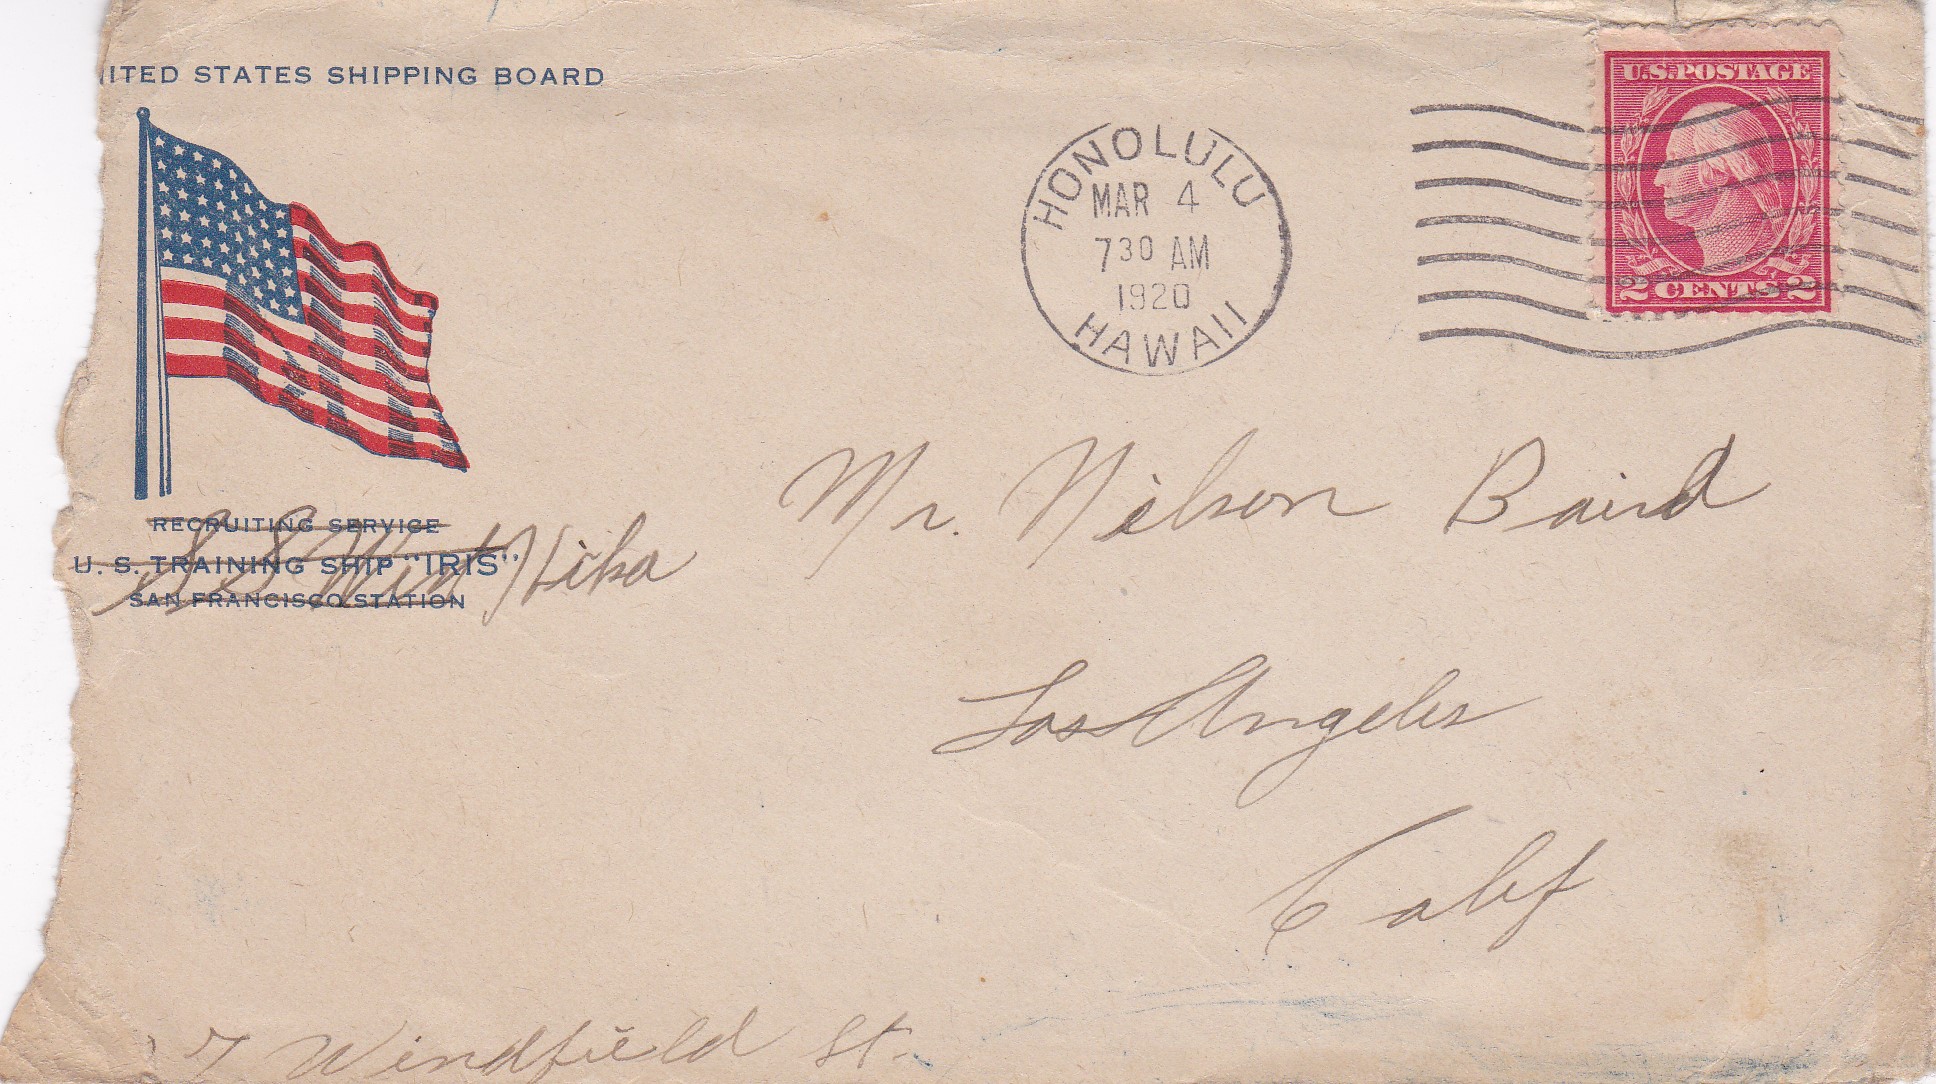 NITED STATES SHIPPING BOARD
HONOLULU
MAR 4
7 30 AM
1920
HAWAII
U.S. POSTAGE
2 CENTS 2
RECRUITING SERVICE
U. S. TRAINING SHIP "IRIS"
SAN FRANCISCO STATION
S S Hika
Mr. Nelson Baird
Los Angeles
Calif
7 Windfield St.